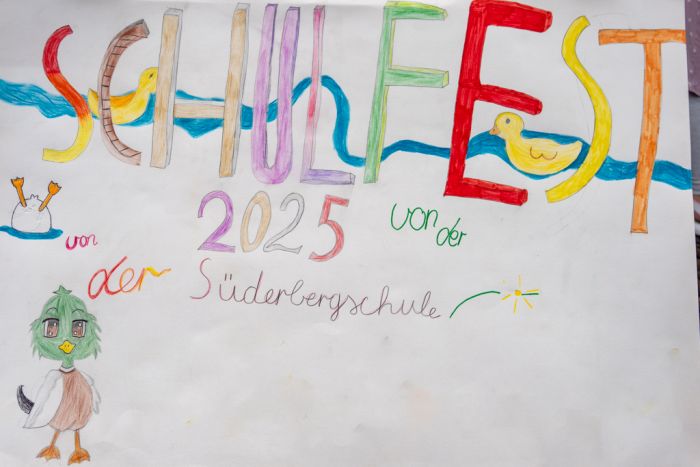 SCHULFEST
2025
von der
von
der
Süderbergschule